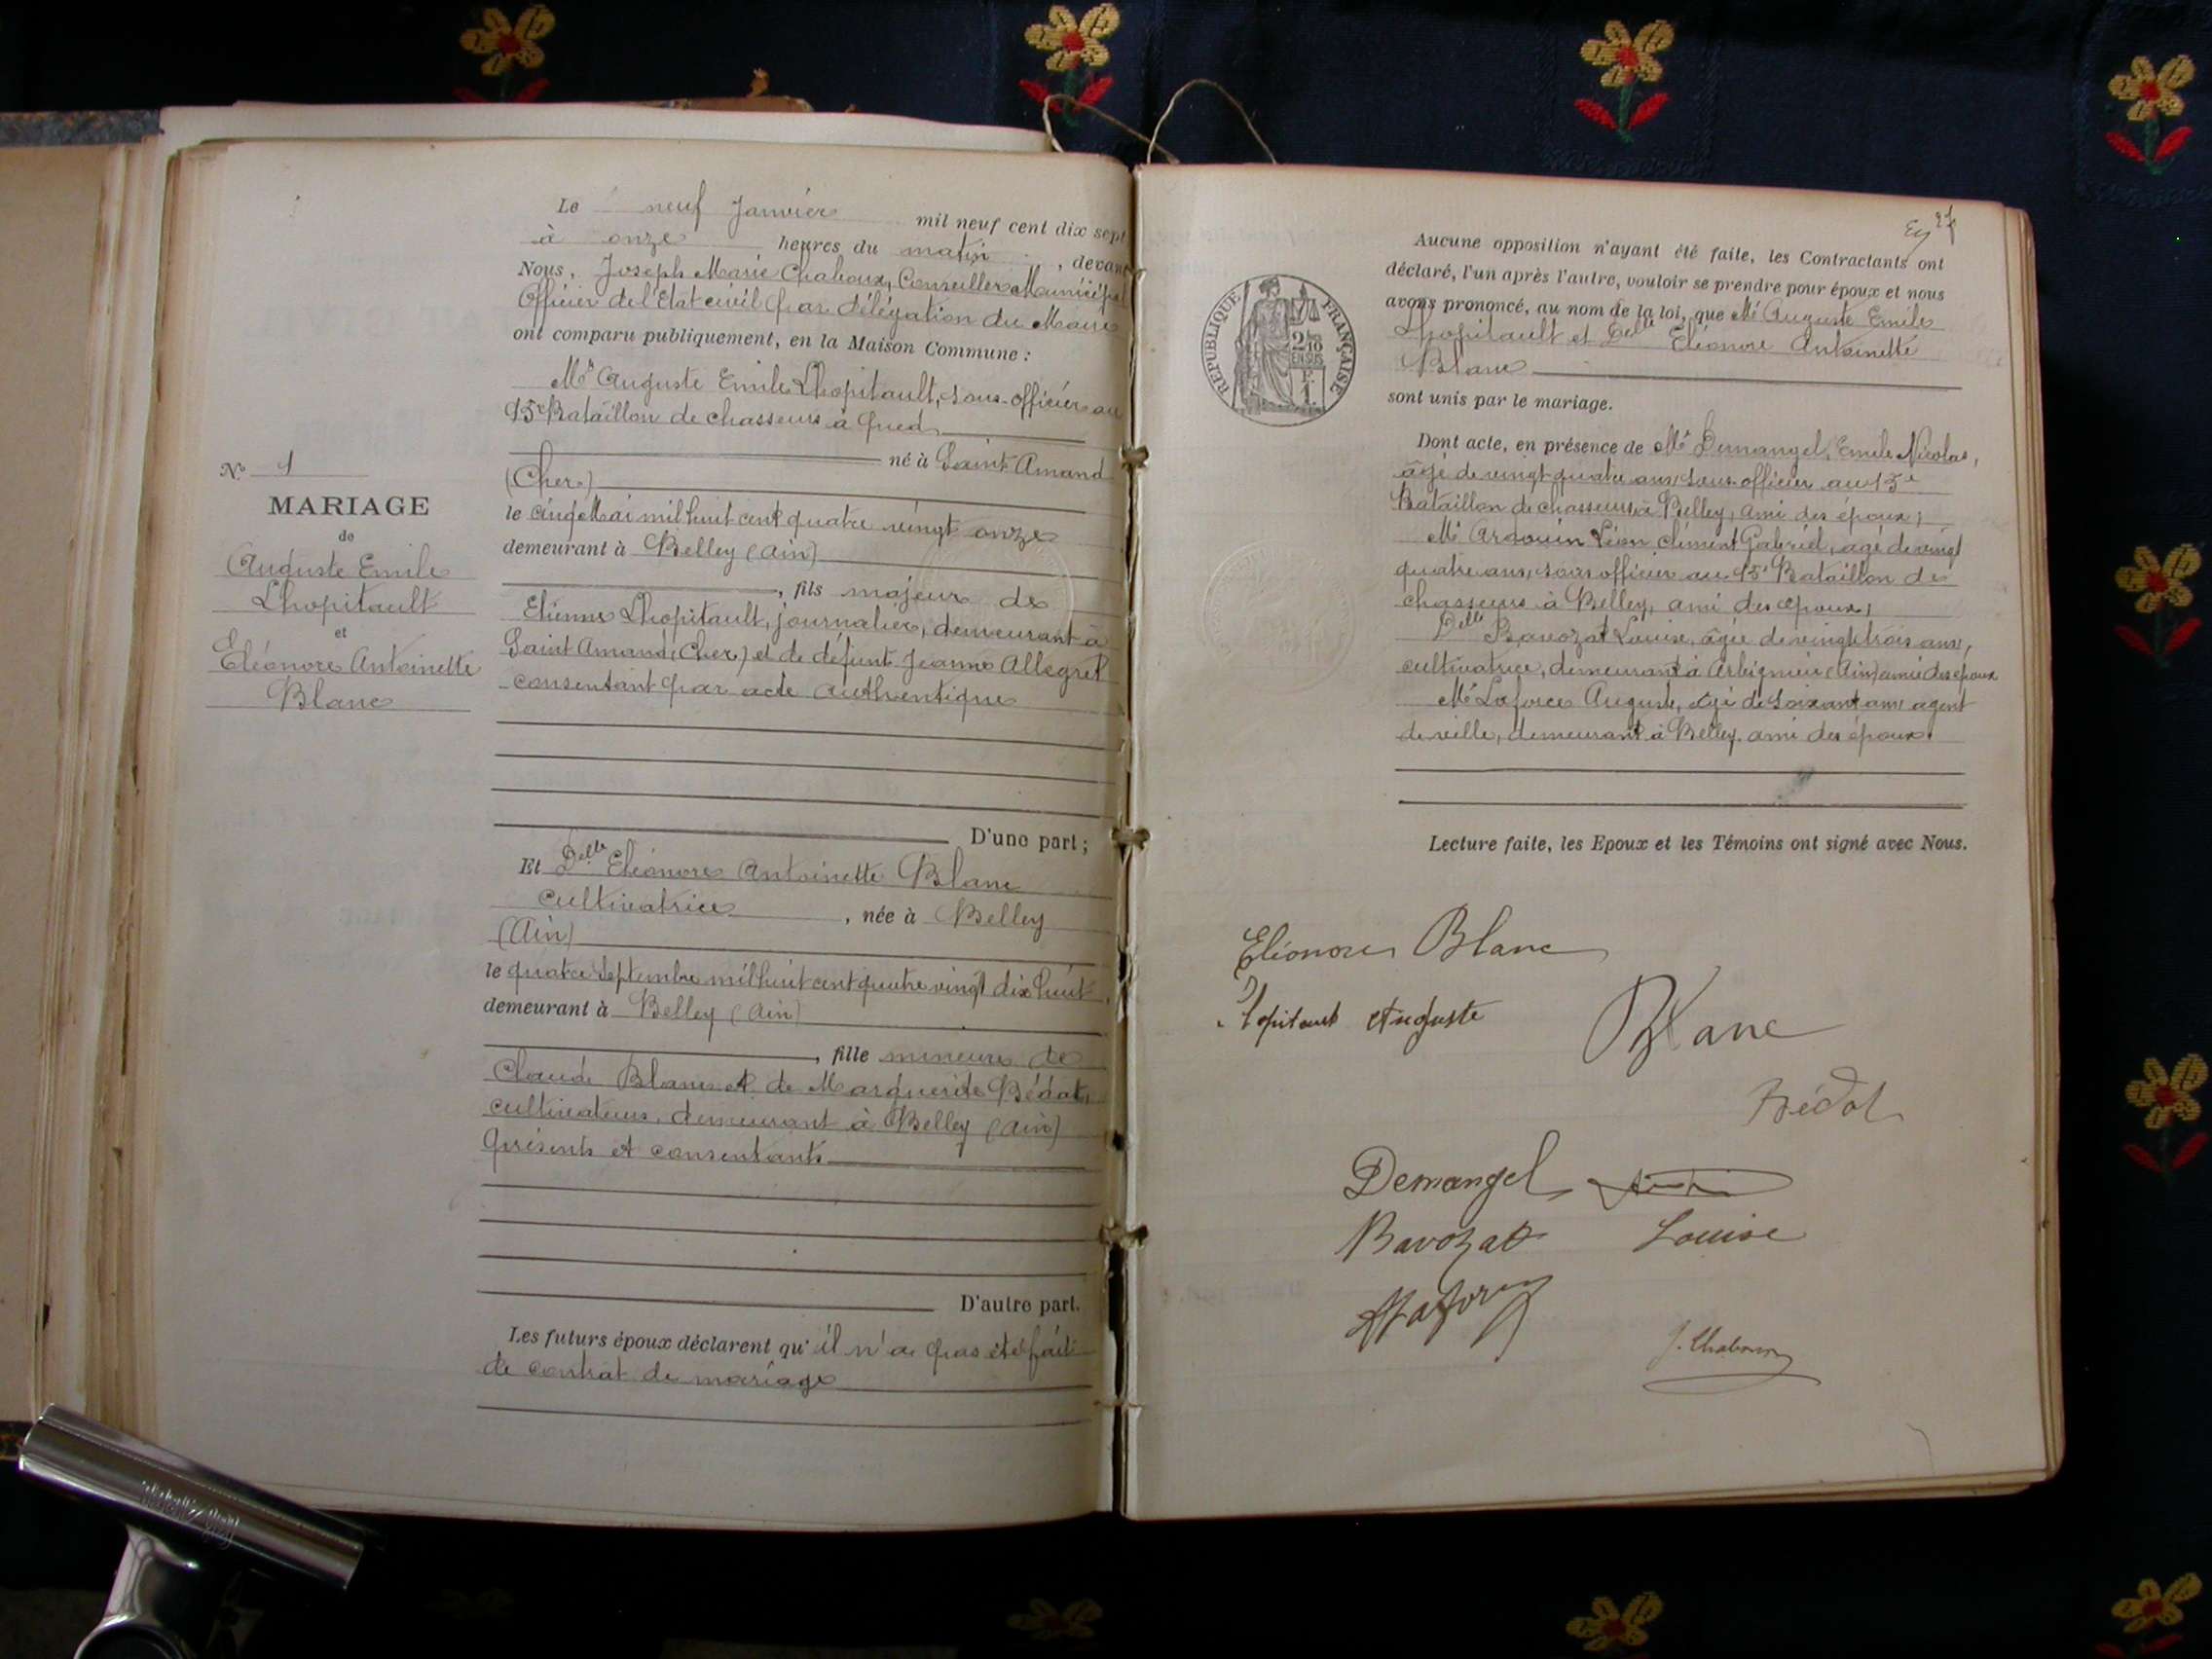 Le neuf Janvier mil neuf cent dix sept
à onze heures du matin, devant
Nous, Joseph Marie Chaboux, Conseiller Municipal
Officier de l'Etat civil par délégation du Maire
ont comparu publiquement, en la Maison Commune :
Mr Auguste Emile Lhopitault, sous-officier au
15e Bataillon de chasseurs à pied
né à Saint Amand
(Cher)
le cinq Mai mil huit cent quatre vingt onze
demeurant à Belley (Ain)
, fils majeur de
Etienne Lhopitault, journalier, demeurant à
Saint Amand (Cher) et de défunte Jeanne Allegret
consentant par acte authentique
D'une part ;
Et Delle Eléonore Antoinette Blanc
cultivatrice, née à Belley
(Ain)
le quatre Septembre mil huit cent quatre vingt dix huit
demeurant à Belley (Ain)
, fille mineure de
Claude Blanc et de Marguerite Bédat,
cultivateurs, demeurant à Belley (Ain)
présents et consentants
D'autre part.
Les futurs époux déclarent qu'il n'a pas été fait
de contrat de mariage
No 1
MARIAGE
de
Auguste Emile
Lhopitault
et
Eléonore Antoinette
Blanc
27
Aucune opposition n'ayant été faite, les Contractants ont
déclaré, l'un après l'autre, vouloir se prendre pour époux et nous
avons prononcé, au nom de la loi, que Mr Auguste Emile
Lhopitault et Delle Eléonore Antoinette
Blanc
sont unis par le mariage.
RÉPUBLIQUE FRANÇAISE
2/10
EN SUS
1 F.
Dont acte, en présence de Mr Demangel, Emile Nicolas,
âgé de vingt quatre ans, sous officier au 15e
Bataillon de chasseurs à Belley, ami des époux ;
Mr Ardouin Léon Clément Gabriel, âgé de vingt
quatre ans, sous officier au 15e Bataillon de
chasseurs à Belley, ami des époux,
Delle Bavozat Louise, âgée de vingt trois ans,
cultivatrice, demeurant à Arbignieu (Ain) amie des époux
Mr Laforce Auguste, âgé de soixante ans agent
de ville, demeurant à Belley ami des époux.
Lecture faite, les Epoux et les Témoins ont signé avec Nous.
Eléonore Blanc
Lhopitault Auguste
Blanc
Bédat
Demangel
Bavozat Louise
J. Chaboux